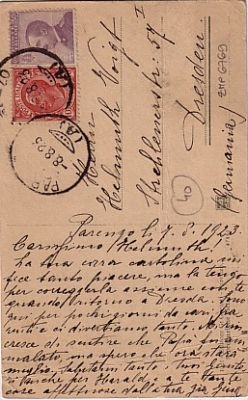 Herrn
Helmuth Voigt
Strehlenerstr. 57 I
Dresden.
Germania
ZMP 6769
40
PAR
(A)
-8.8.23
Parenzo li 7. 8. 1923
Carissimo Helmuth!
La tua cara cartolina mi
fece tanto piacere, ma la tengo
per correggerla assieme con te
quando ritorno a Dresda. Sono
qui per pochi giorni da cari pa-
renti e ci divertiamo tanto. Mi rin-
cresce di sentire che Papà fu am-
malato, ma spero che ora starà
meglio. Salutami tanto i tuoi genitori
anche per Heraldo e a te tante
cose affettuose dalla tua zia